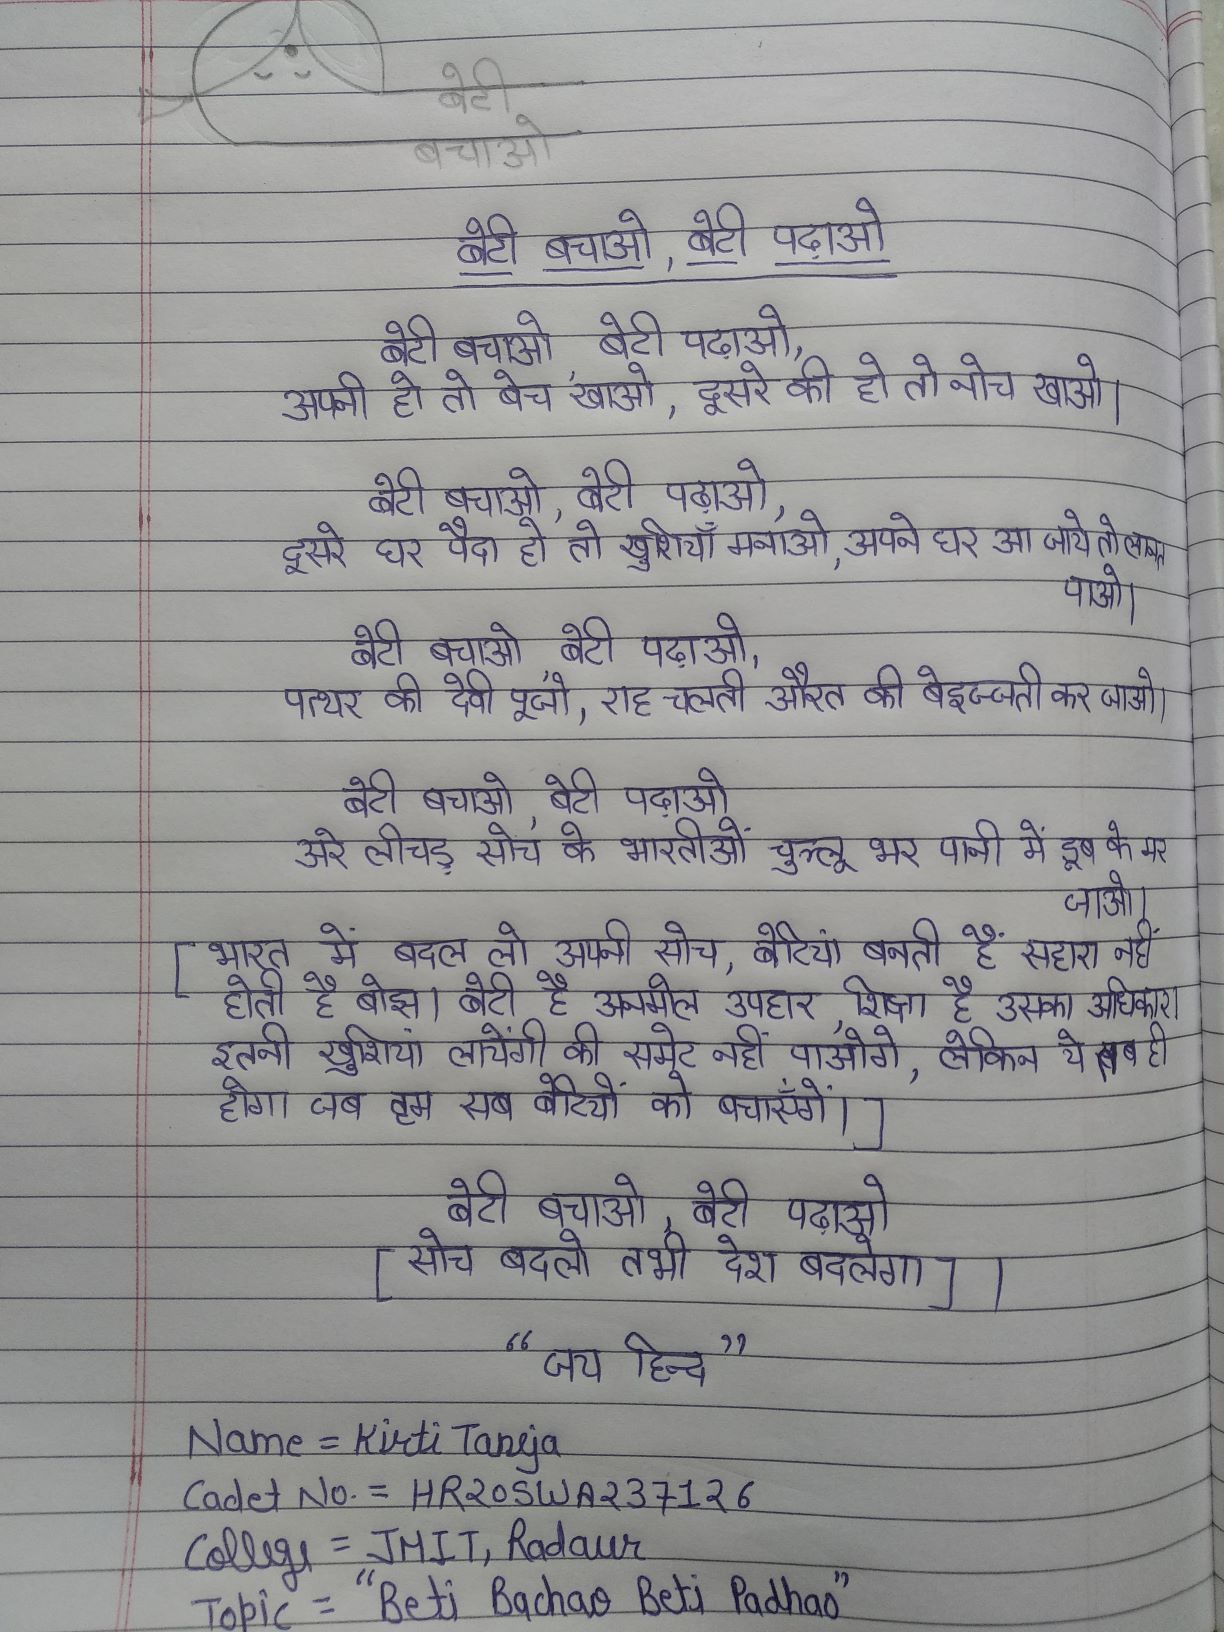 बेटी
बचाओ
बेटी बचाओ, बेटी पढ़ाओ
बेटी बचाओ, बेटी पढ़ाओ,
अपनी हो तो बेच खाओ, दूसरे की हो तो नोच खाओ।
बेटी बचाओ, बेटी पढ़ाओ,
दूसरे घर पैदा हो तो खुशियाँ मनाओ, अपने घर आ जाये तो लानत
पाओ।
बेटी बचाओ, बेटी पढ़ाओ,
पत्थर की देवी पूजो, राह चलती औरत की बेइज्जती कर जाओ।
बेटी बचाओ, बेटी पढ़ाओ
अरे लीचड़ सोच के भारतीओं चुल्लू भर पानी में डूब के मर
जाओ।
[ भारत में बदल लो अपनी सोच, बेटियां बनती हैं सहारा नहीं
होती है बोझ। बेटी है अनमोल उपहार, शिक्षा है उसका अधिकार।
इतनी खुशियां लायेंगी की समेट नहीं पाओगे, लेकिन ये तब ही
होगा जब तुम सब बेटियों को बचाएँगें। ]
बेटी बचाओ, बेटी पढ़ाओ
[ सोच बदलो तभी देश बदलेगा ] |
“जय हिन्द”
Name = Kirti Taneja
Cadet No. = HR20SWA237126
College = JMIT, Radaur
Topic = “Beti Bachao Beti Padhao”